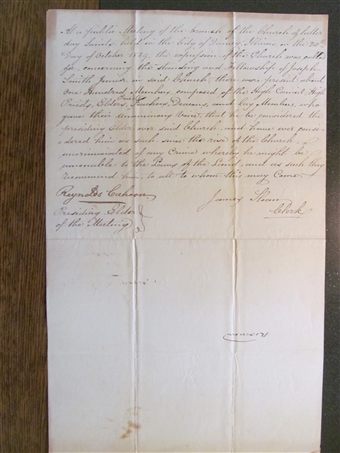 At a public Meeting of the branch of the Church of Latter
day Saints held in the City of Quincy Illinois on the 20th
Day of October 1839, the expression of the Church was called
for, concerning the standing and Fellowship of Joseph
Smith Junior in said Church, there were present about
One Hundred Members composed of the High Council, High
Priests, Elders, Teachers, Deacons, and lay Members, who
gave their unanimous voice, that he be considered the
presiding Elder over said Church, and have ever consi-
dered him as such since the rise of the Church,
of any Crime whereby he might be
to the Laws of the Land, and as such they
recommend him to all to whom this may Come.
Reynolds Cahoon
Presiding Elder
of the Meeting
James Sloan
Clerk